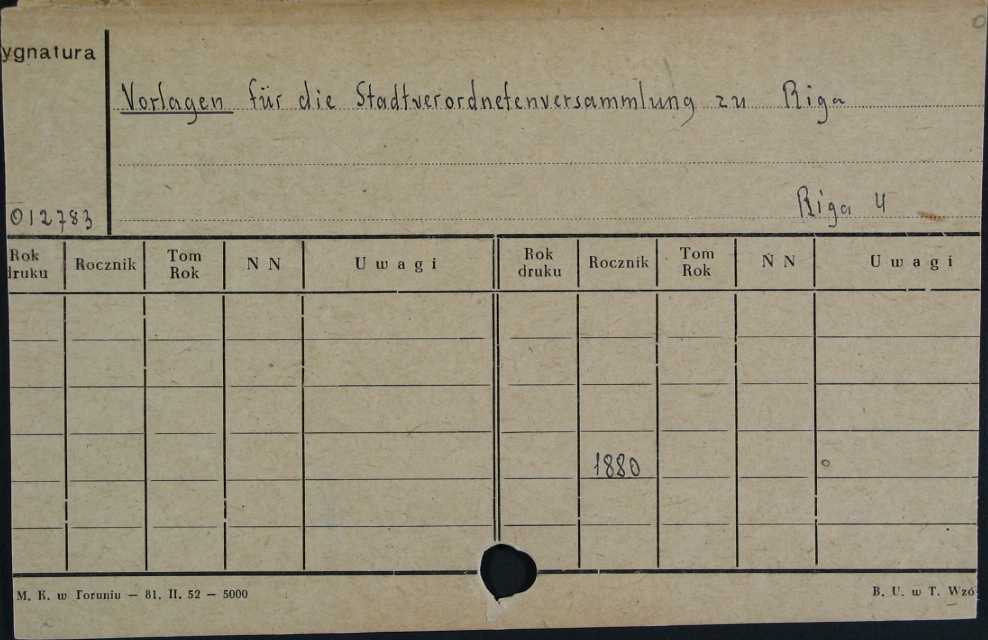 ygnatura
Vorlagen für die Stadtverordnetenversammlung zu Riga
012783
Riga 4
Rok druku Rocznik Tom Rok N N Uwagi Rok druku Rocznik Tom Rok N N Uwagi
1880
M. K. w Toruniu — 81. II. 52 — 5000
B. U. w T. Wzó